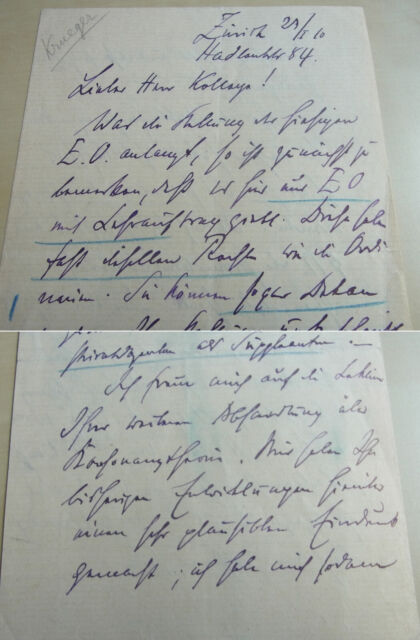 Krueger
Zürich 29/I 10
Hadlaubstr 84.
Lieber Herr Kollege!
Was die Stellung der hiesigen
E.O. anlangt, so ist zunächst zu
bemerken, daß es hier nur EO
mit Lehrauftrag gibt. Diese haben
fast dieselben Rechte wie die Ordi
narien. Sie können sogar Dekan
Privatdozenten als Suppleanten
Ich freue mich auf die Lektüre
Ihrer weiteren Abhandlung über
Konsonanztheorie. Mir haben Ihre
bisherigen Entwicklungen hierüber
einen sehr plausiblen Eindruck
gemacht; ich habe mich sodann